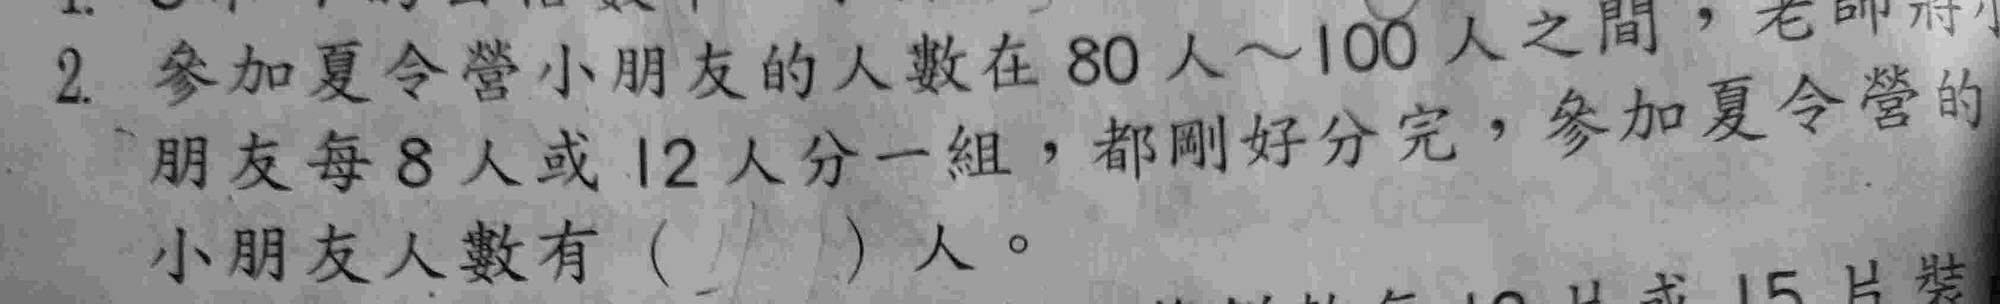 2. 參加夏令營小朋友的人數在 80 人～100 人之間，老師將小
朋友每 8 人或 12 人分一組，都剛好分完，參加夏令營的
小朋友人數有（　　）人。
15 片裝